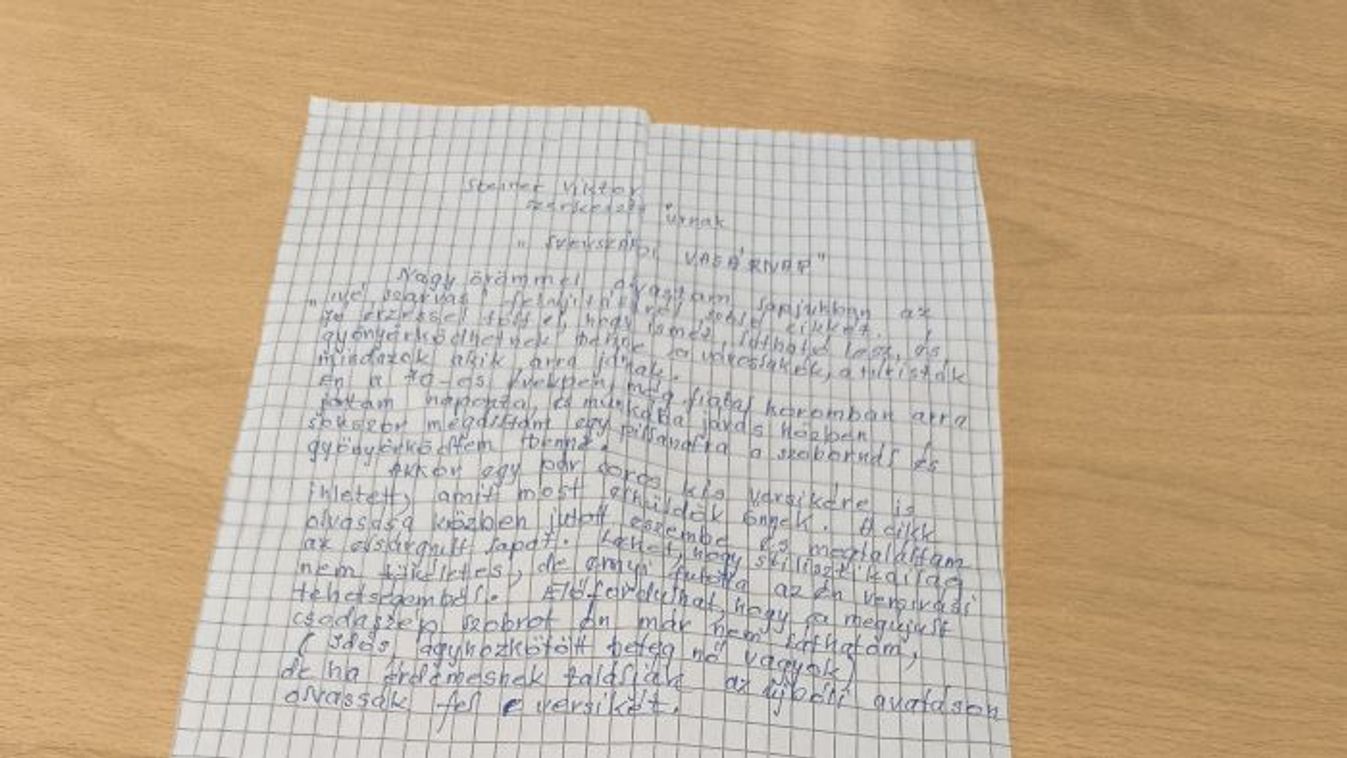 Steiner Viktor
szerkesztő úrnak
" SZEKSZÁRDI VASÁRNAP "
Nagy örömmel olvastam lapjukban az
szarvas" felújításáról szóló cikket.
jó érzéssel tölt el, hogy ismét látható lesz, és
gyönyörködhetnek benne a városlakók, a turisták
mindazok akik arra járnak.
Én a 70-es években, még fiatal koromban arra
jártam naponta, és munkába járás közben
sokszor megálltam egy pillanatra a szobornál és
gyönyörködtem benne.
Akkor egy pár soros kis versikére is
ihletett, amit most elküldök önnek. A cikk
olvasása közben jutott eszembe és megtaláltam
az elsárgult lapot. Lehet, hogy stilisztikailag
nem tökéletes, de ennyi futotta az én versírási
tehetségemből. Előfordulhat, hogy a megújult
csodaszép szobrot én már nem láthatom,
( Idős, ágyhozkötött beteg nő vagyok)
de ha érdemesnek találják az újbóli avatáson
olvassák fel e versikét.